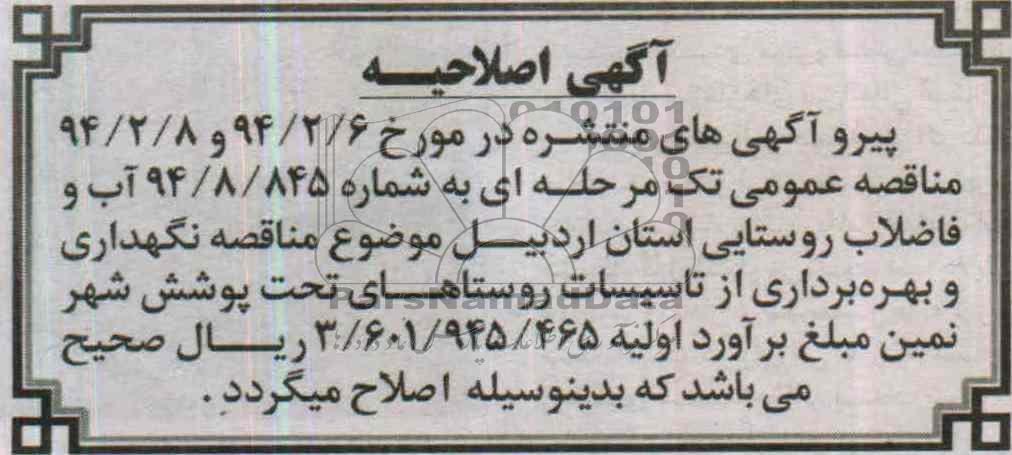 آگهی اصلاحیه
پیرو آگهی های منتشره در مورخ ۹۴/۲/۶ و ۹۴/۲/۸
مناقصه عمومی تک مرحله ای به شماره ۹۴/۸/۸۴۵ آب و
فاضلاب روستایی استان اردبیل موضوع مناقصه نگهداری
و بهره‌برداری از تاسیسات روستاهای تحت پوشش شهر
نمین مبلغ برآورد اولیه ۳/۶۰۱/۹۴۵/۴۶۵ ریال صحیح
می باشد که بدینوسیله اصلاح میگردد.
ParsNamadData